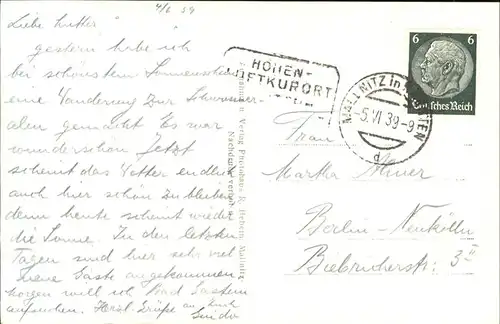 4/6 39
Liebe Mutter!
gestern habe ich
bei schönstem Sonnenschein
eine Wanderung zur
alm gemacht. Es war
wunderschön. Jetzt
scheint das Wetter endlich
auch hier schön zu bleiben
denn heute scheint wieder
die Sonne. In den letzten
Tagen sind hier sehr viel
neue Gäste angekommen.
Morgen will ich Bad Gastein
aufsuchen. Herzl. Grüße an Euch
Guido
Verlag Photohaus
Nachdruck verboten
HÖHEN-
LUFTKURORT
MALLNITZ
-5.VI.39-9
d
6 6
Deutsches Reich
Frau
Martha
Berlin-Neukölln
Biebricherstr. 3 II